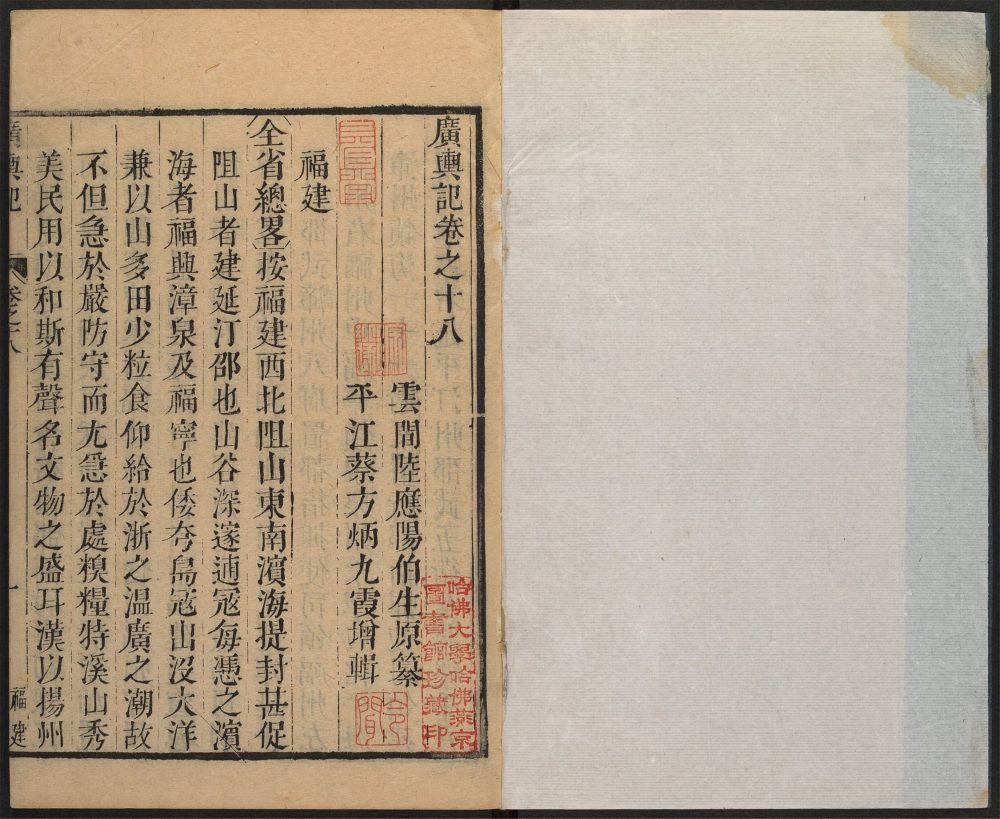 廣輿記卷之十八
雲間陸應陽伯生原纂
平江蔡方炳九霞增輯
福建
全省總畧按福建西北阻山東南濱海提封甚促
阻山者建延汀邵也山谷深邃逋寇每憑之濱
海者福興漳泉及福寧也倭夸島寇出沒大洋
兼以山多田少粒食仰給於浙之溫廣之潮故
不但急於嚴防守而尢急於處糗糧特溪山秀
美民用以和斯有聲名文物之盛耳漢以揚州
廣輿記
卷之十八
一
福建
哈佛大學哈佛燕京
圖書館珍藏印